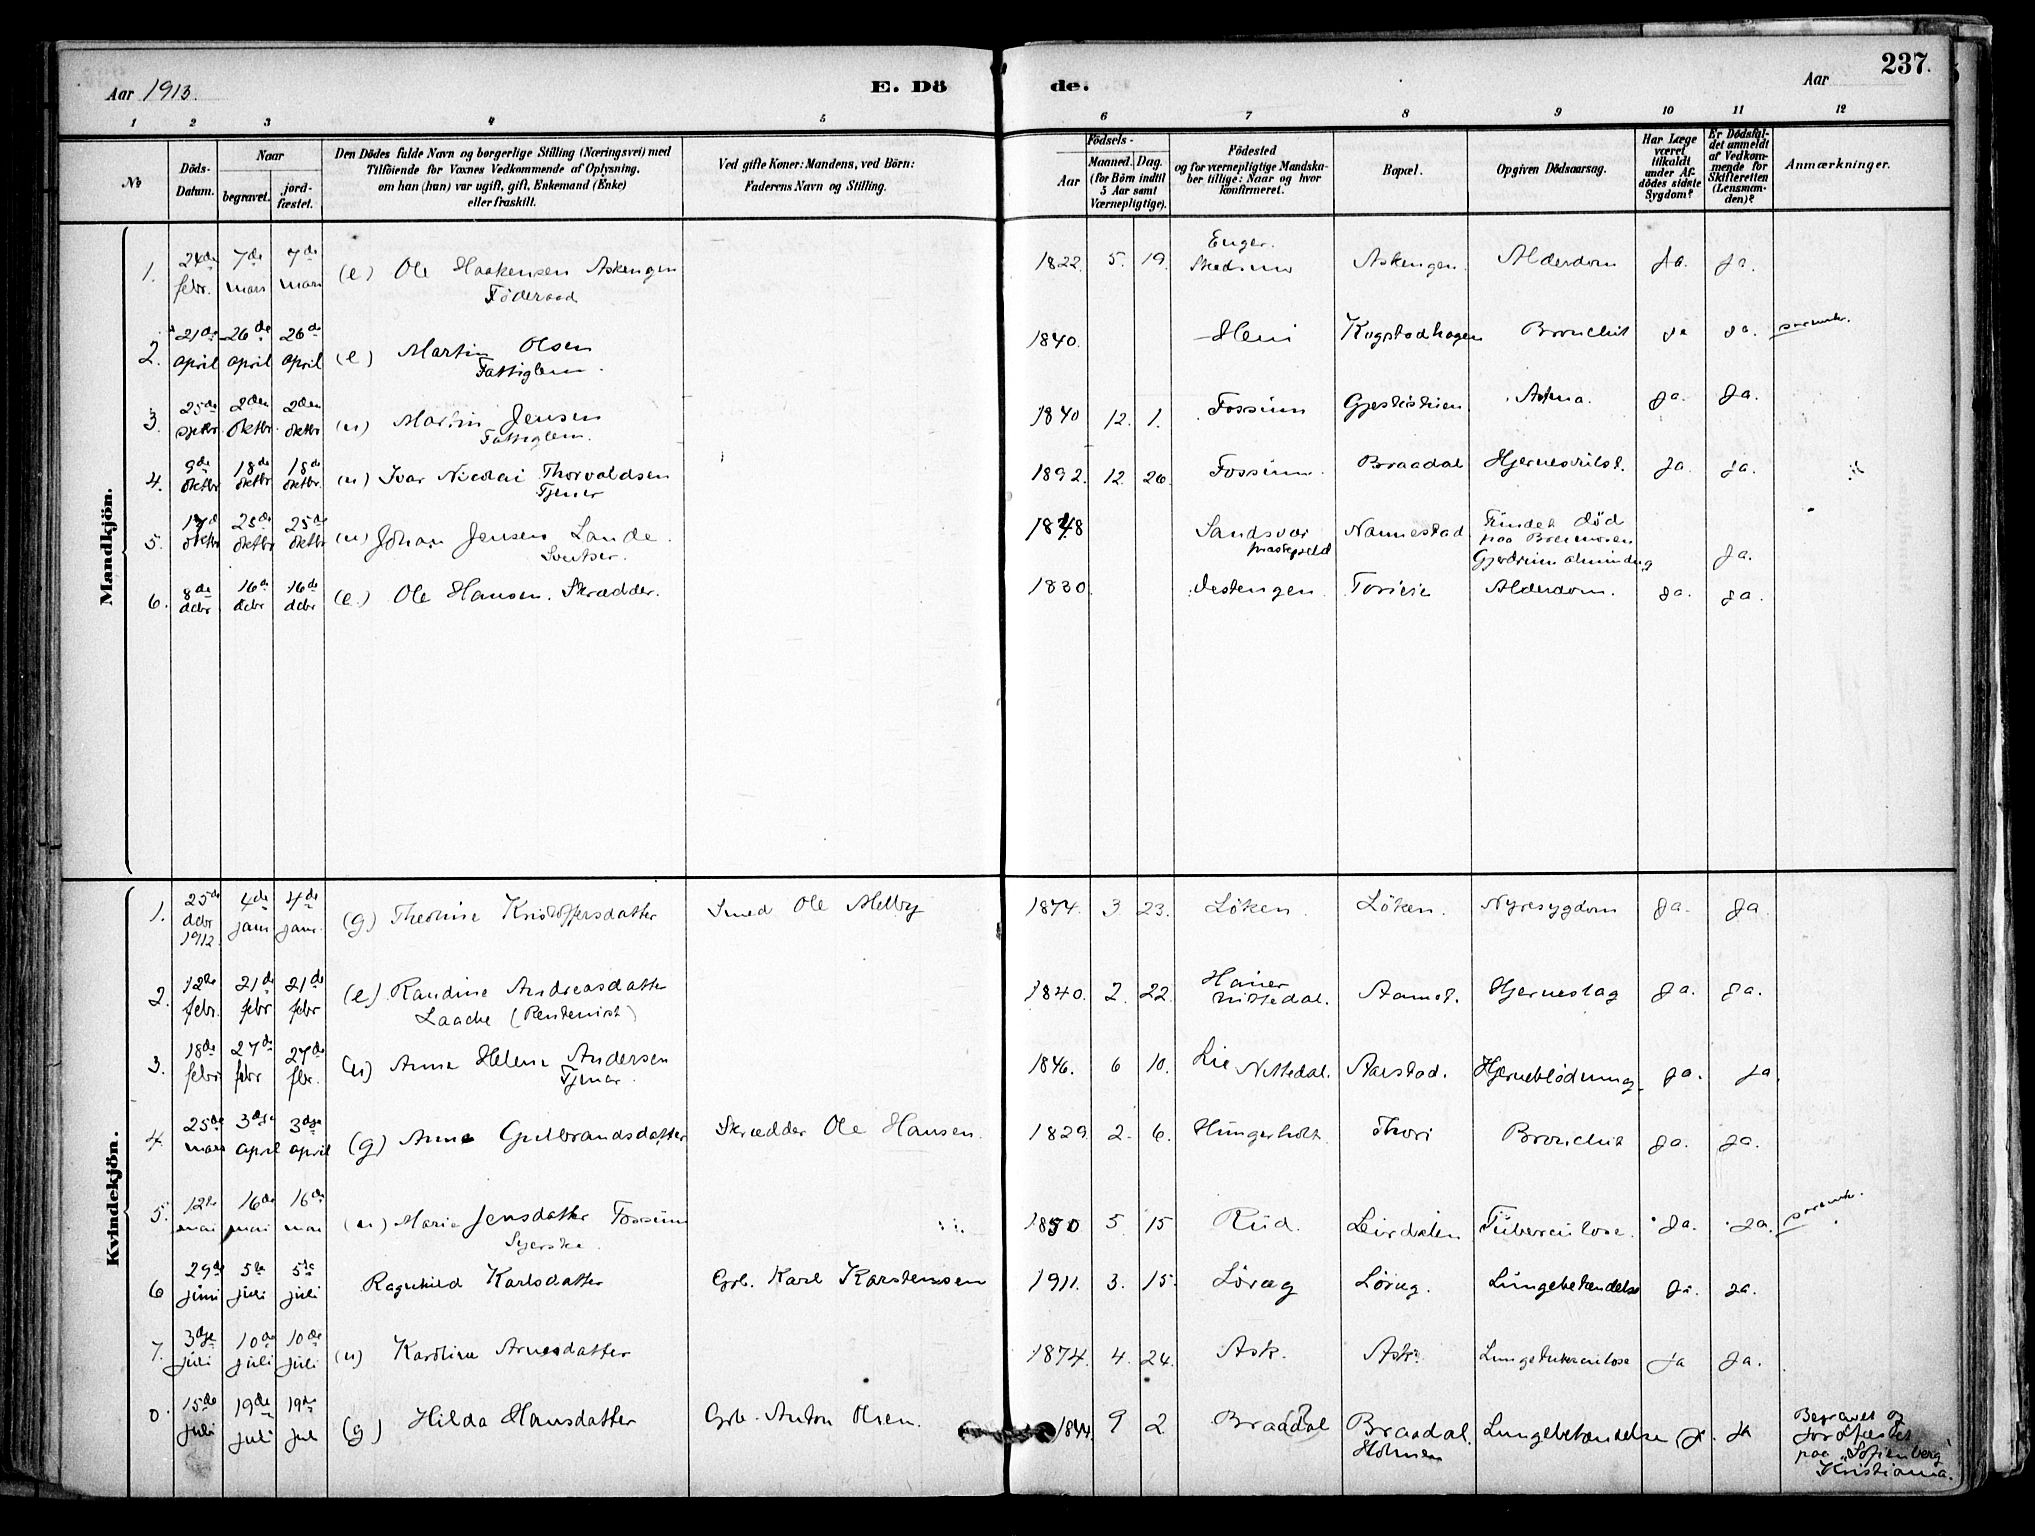 Aar 1913.
E. Dö
de.
Aar
237.
1 2 3 4 5 6 7 8 9 10 11 12
No
Döds-Datum.
Naar
begravet.
jord-fæstet.
Den Dödes fulde Navn og borgerlige Stilling (Næringsvei) med
Tilföiende for Voxnes Vedkommende af Oplysning,
om han (hun) var ugift, gift, Enkemand (Enke)
eller fraskilt.
Ved gifte Koner: Mandens, ved Börn:
Faderens Navn og Stilling.
Födsels-
Aar
Maaned. Dag.
(for Börn indtil
5 Aar samt
Værnepligtige).
Födested
og for værnepligtige Mandska-
ber tillige: Naar og hvor
konfirmeret.
Bopæl.
Opgiven Dödsaarsag.
Har Læge
været
tilkaldt
under Af-
dödes sidste
Sygdom?
Er Dödsfal-
det anmeldt
af Vedkom-
mende for
Skifteretten
(Lensman-
den)?
Anmærkninger.
Mandkjön.
1. 24de febr. 7de mars 7de mars (e) Ole Haakensen Askengen Föderaad 1822. 5. 19. Enger. Skedsmo Askengen. Alderdom Ja. Ja.
2. 21de april 26de april 26de april (e) Martin Olsen Fattiglem. 1840. Heni Kogstadhagen Bronchit ja ja.
3. 25de sptbr 2den oktbr 2den oktbr (u) Martin Jensen Fattiglem. 1840 12. 1. Fossum Astma. Ja. Ja.
4. 9de oktbr 18de oktbr 18de oktbr. (u) Ivar Nicolai Thorvaldsen Tjener 1892. 12. 26. Fossum. Braadal Ja. Ja.
5. oktbr 25de oktbr 25de oktbr (u) Johan Jensen Lande. 1848 Sandsvær præstegjeld Nannestad Fundet död paa Gjerdrum almindug Ja.
6. 8de dcbr 16de dcbr 16de dcbr (e.) Ole Hansen. Skrædder. 1830 Vestengen. Alderdom. Ja. Ja.
Kvindekjön.
1. 25de dcbr 1912. 4de janr 4de janr. (g) Theorine Kristoffersdatter Smed Ole Melby 1874. 3 23. Löken. Löken. Nyresygdom Ja. Ja.
2. 12te febr. 21de febr 21de febr (e.) Randine Andreasdatter Laache (Rentenist) 1840. 2. 22. Nittedal. Aamot. Hjerneslag Ja. Ja.
3. 18de febr 27de febr 27de fbr. (u) Anne Helene Andersen Tjener. 1846. 6 10. Lie Nittedal. Aarstad. Hjerneblödning. Ja. Ja.
4. 25de mars 3dje april 3dje april (g) Anne Gulbrandsdatter Skrædder Ole Hansen. 1829. 2. 6. Hungerholt. Thori Bronchit Ja. Ja.
5. 12te mai 16de mai 16de mai (u) Marie Jensdatter Fossum Syerske. 1850 5. 15 Rud. Leirdalen Tuberculose. Ja. Ja.
6 29de juni 5te juli 5te juli Ragnhild Karlsdatter Grb. Karl Karstensen 1911. 3. 15. Löräg Löräg. Lungebetændelse Ja. Ja.
7. 3dje juli 10de juli 10de juli (u) Karoline Arnesdatter 1874. 4. 24. Ask. Ask. Lungetuberculose ja Ja.
15de juli 19de juli 19de juli (g) Hilda Hansdatter Grb. Anton Olsen. 1844. 9 2 Braadal Braadal. Holmen Lungebetændelse Ja. Ja Begravet og jordfæstet paa "Sofienberg" Kristiania.